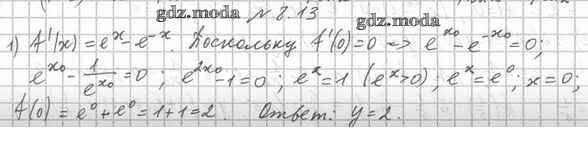 gdz.moda № 8.13 gdz.moda
1) f'(x) = e^x - e^{-x}. Поскольку f'(0) = 0 => e^{x_0} - e^{-x_0} = 0;
e^{x_0} - 1/e^{x_0} = 0; e^{2x_0} - 1 = 0; e^x = 1 (e^x > 0); e^x = e^0; x = 0;
f(0) = e^0 + e^0 = 1 + 1 = 2. Ответ: y = 2.